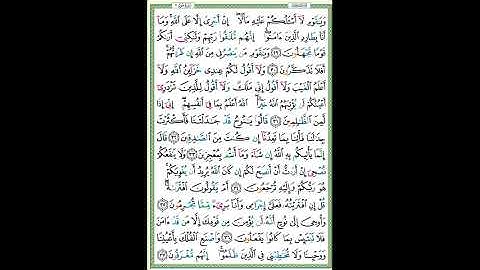 وَيَٰقَوْمِ لَآ أَسْـَٔلُكُمْ عَلَيْهِ مَالًا ۖ إِنْ أَجْرِىَ إِلَّا عَلَى ٱللَّهِ ۚ وَمَآ
أَنَا۠ بِطَارِدِ ٱلَّذِينَ ءَامَنُوٓا۟ ۚ إِنَّهُم مُّلَٰقُوا۟ رَبِّهِمْ وَلَٰكِنِّىٓ أَرَىٰكُمْ
قَوْمًا تَجْهَلُونَ ٢٩ وَيَٰقَوْمِ مَن يَنصُرُنِى مِنَ ٱللَّهِ إِن طَرَدتُّهُمْ ۚ
أَفَلَا تَذَكَّرُونَ ٣٠ وَلَآ أَقُولُ لَكُمْ عِندِى خَزَآئِنُ ٱللَّهِ وَلَآ
أَعْلَمُ ٱلْغَيْبَ وَلَآ أَقُولُ إِنِّى مَلَكٌ وَلَآ أَقُولُ لِلَّذِينَ تَزْدَرِىٓ
أَعْيُنُكُمْ لَن يُؤْتِيَهُمُ ٱللَّهُ خَيْرًا ۖ ٱللَّهُ أَعْلَمُ بِمَا فِىٓ أَنفُسِهِمْ ۖ إِنِّىٓ إِذًا
لَّمِنَ ٱلظَّٰلِمِينَ ٣١ قَالُوا۟ يَٰنُوحُ قَدْ جَٰدَلْتَنَا فَأَكْثَرْتَ
جِدَٰلَنَا فَأْتِنَا بِمَا تَعِدُنَآ إِن كُنتَ مِنَ ٱلصَّٰدِقِينَ ٣٢ قَالَ
إِنَّمَا يَأْتِيكُم بِهِ ٱللَّهُ إِن شَآءَ وَمَآ أَنتُم بِمُعْجِزِينَ ٣٣ وَلَا يَنفَعُكُمْ
نُصْحِىٓ إِنْ أَرَدتُّ أَنْ أَنصَحَ لَكُمْ إِن كَانَ ٱللَّهُ يُرِيدُ أَن يُغْوِيَكُمْ ۚ
هُوَ رَبُّكُمْ وَإِلَيْهِ تُرْجَعُونَ ٣٤ أَمْ يَقُولُونَ ٱفْتَرَىٰهُ ۖ
قُلْ إِنِ ٱفْتَرَيْتُهُۥ فَعَلَىَّ إِجْرَامِى وَأَنَا۠ بَرِىٓءٌ مِّمَّا تُجْرِمُونَ ٣٥
وَأُوحِىَ إِلَىٰ نُوحٍ أَنَّهُۥ لَن يُؤْمِنَ مِن قَوْمِكَ إِلَّا مَن قَدْ ءَامَنَ
فَلَا تَبْتَئِسْ بِمَا كَانُوا۟ يَفْعَلُونَ ٣٦ وَٱصْنَعِ ٱلْفُلْكَ بِأَعْيُنِنَا
وَوَحْيِنَا وَلَا تُخَٰطِبْنِى فِى ٱلَّذِينَ ظَلَمُوٓا۟ ۚ إِنَّهُم مُّغْرَقُونَ ٣٧